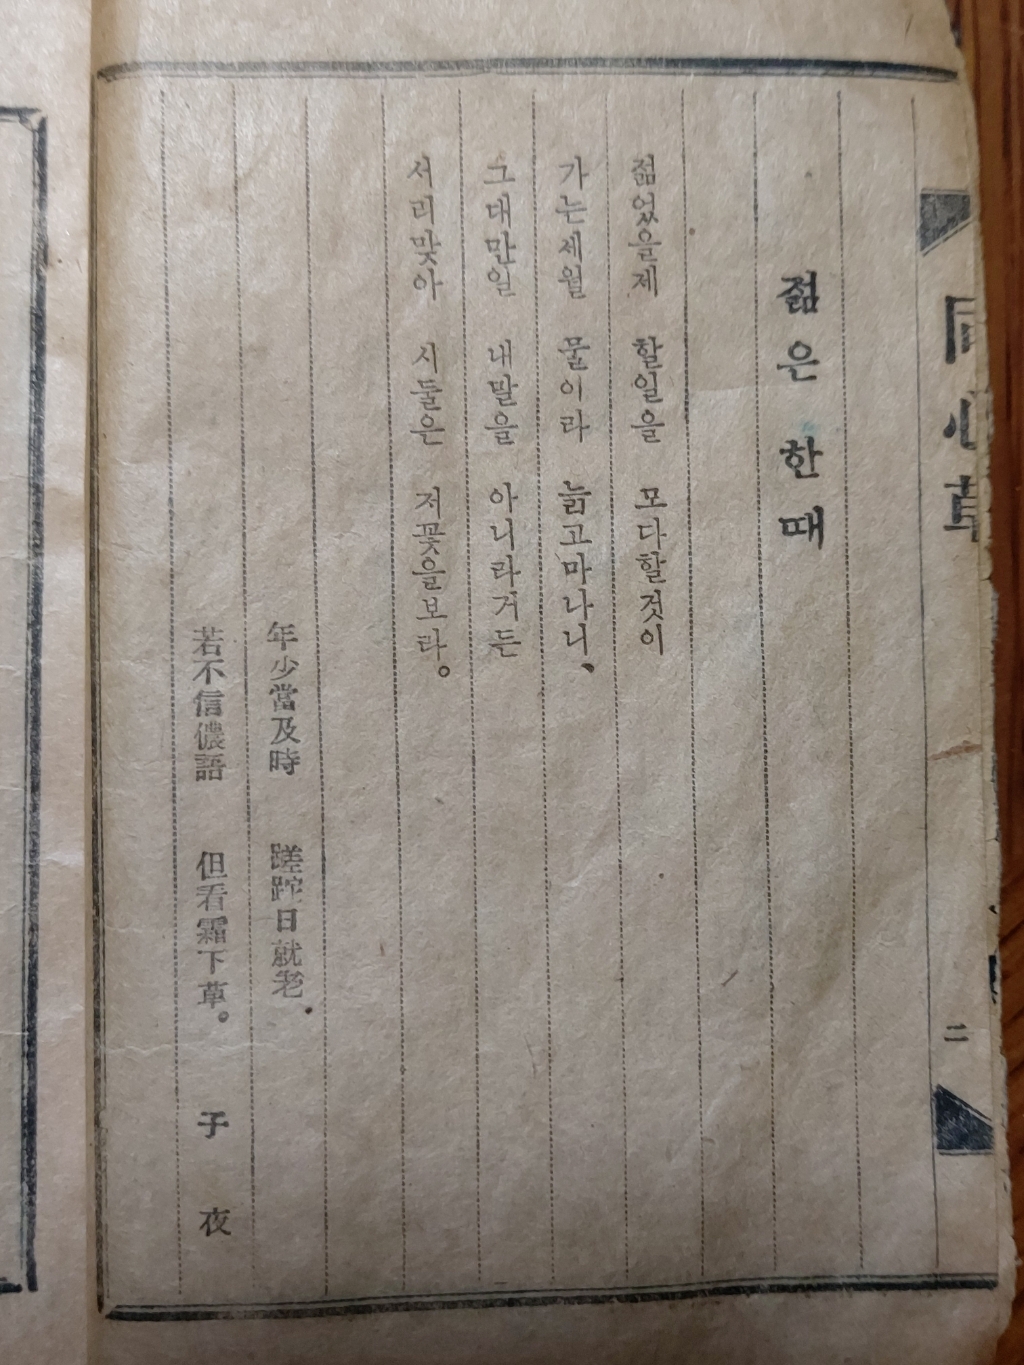 同心草
二
젊은 한때
젊었을제 할일을 모다할것이
가는세월 물이라 늙고마나니、
그대만일 내말을 아니라거든
서리맞아 시들은 저꽃을보라。
年少當及時 蹉跎日就老.
若不信儂語 但看霜下草。
子夜